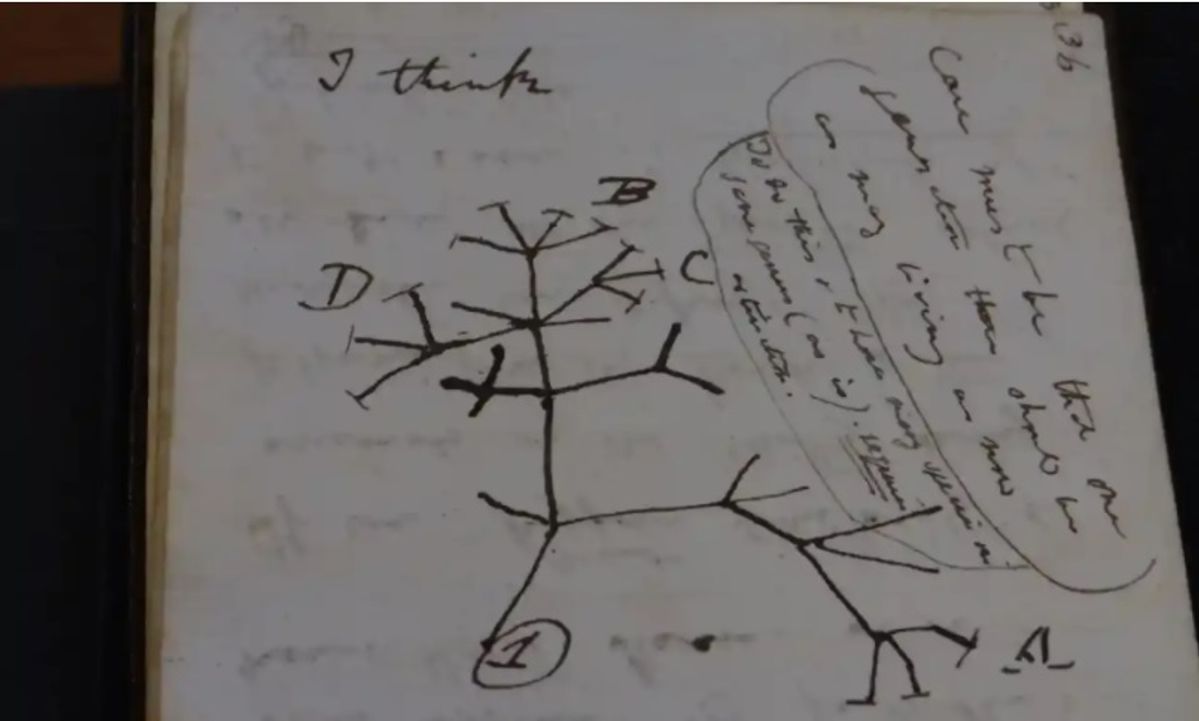 I think
B
D
C
A
1
36
Case must be that one
generation then should be
as many living as now
To do this & to have many species in
same genus (as is). requires
extinction.